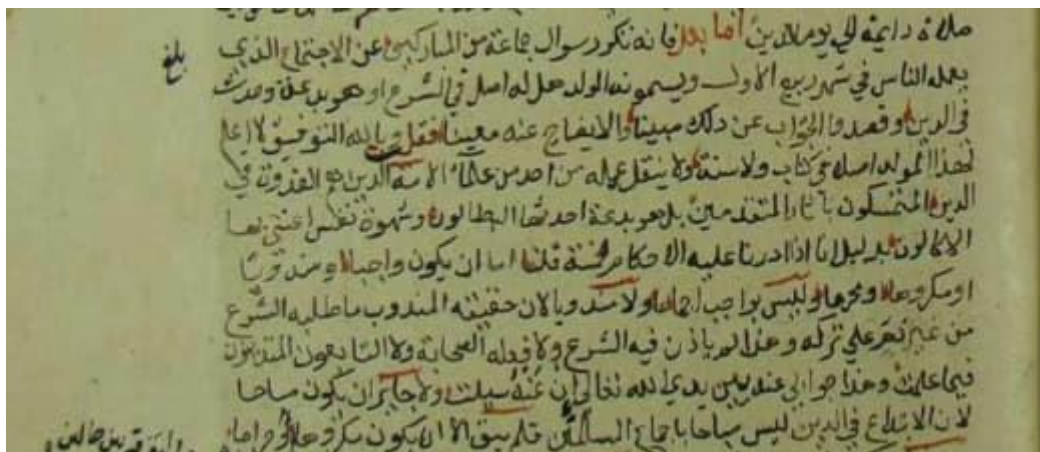 صلاة دايمة الي يوم الدين أما بعد فانه تكرر سوال جماعة من المباركين عن الاجتماع الذي
بلغ
يعمله الناس في شهر ربيع الاول ويسمونه المولد هل له اصل في الشرع او هو بدعة وحدث
في الدين وقصدوا الجواب عن ذلك مبينا والايضاح عنه معينا فقلت بالله التوفيق لا اعلم
لهذا المولد اصلا في كتاب ولا سنة ولا ينقل عمله من احد من علما الامة الذين هم القدوة في
الدين المتمسكون باثار المتقدمين بل هو بدعة احدثها البطالون وشهوة نفس اعتني بها
الاكالون بدليل انا اذا ادرنا عليه الاحكام الخمسة قلنا اما ان يكون واجبا او مندوبا
او مكروها او محرما وليس بواجب اجماعا ولا مندوبا لان حقيقته المندوب ما طلبه الشرع
من غير ذم علي تركه وهذا لم ياذن فيه الشرع ولا فعله الصحابة ولا التابعون المتدينون
فيما علمت وهذا جوابي عنه بين يدي الله تعالي ان عنه سيلت ولا جايز ان يكون مباحا
لان الابتداع في الدين ليس مباحا باجماع المسلمين فلم يبق الا ان يكون مكروها او حراما